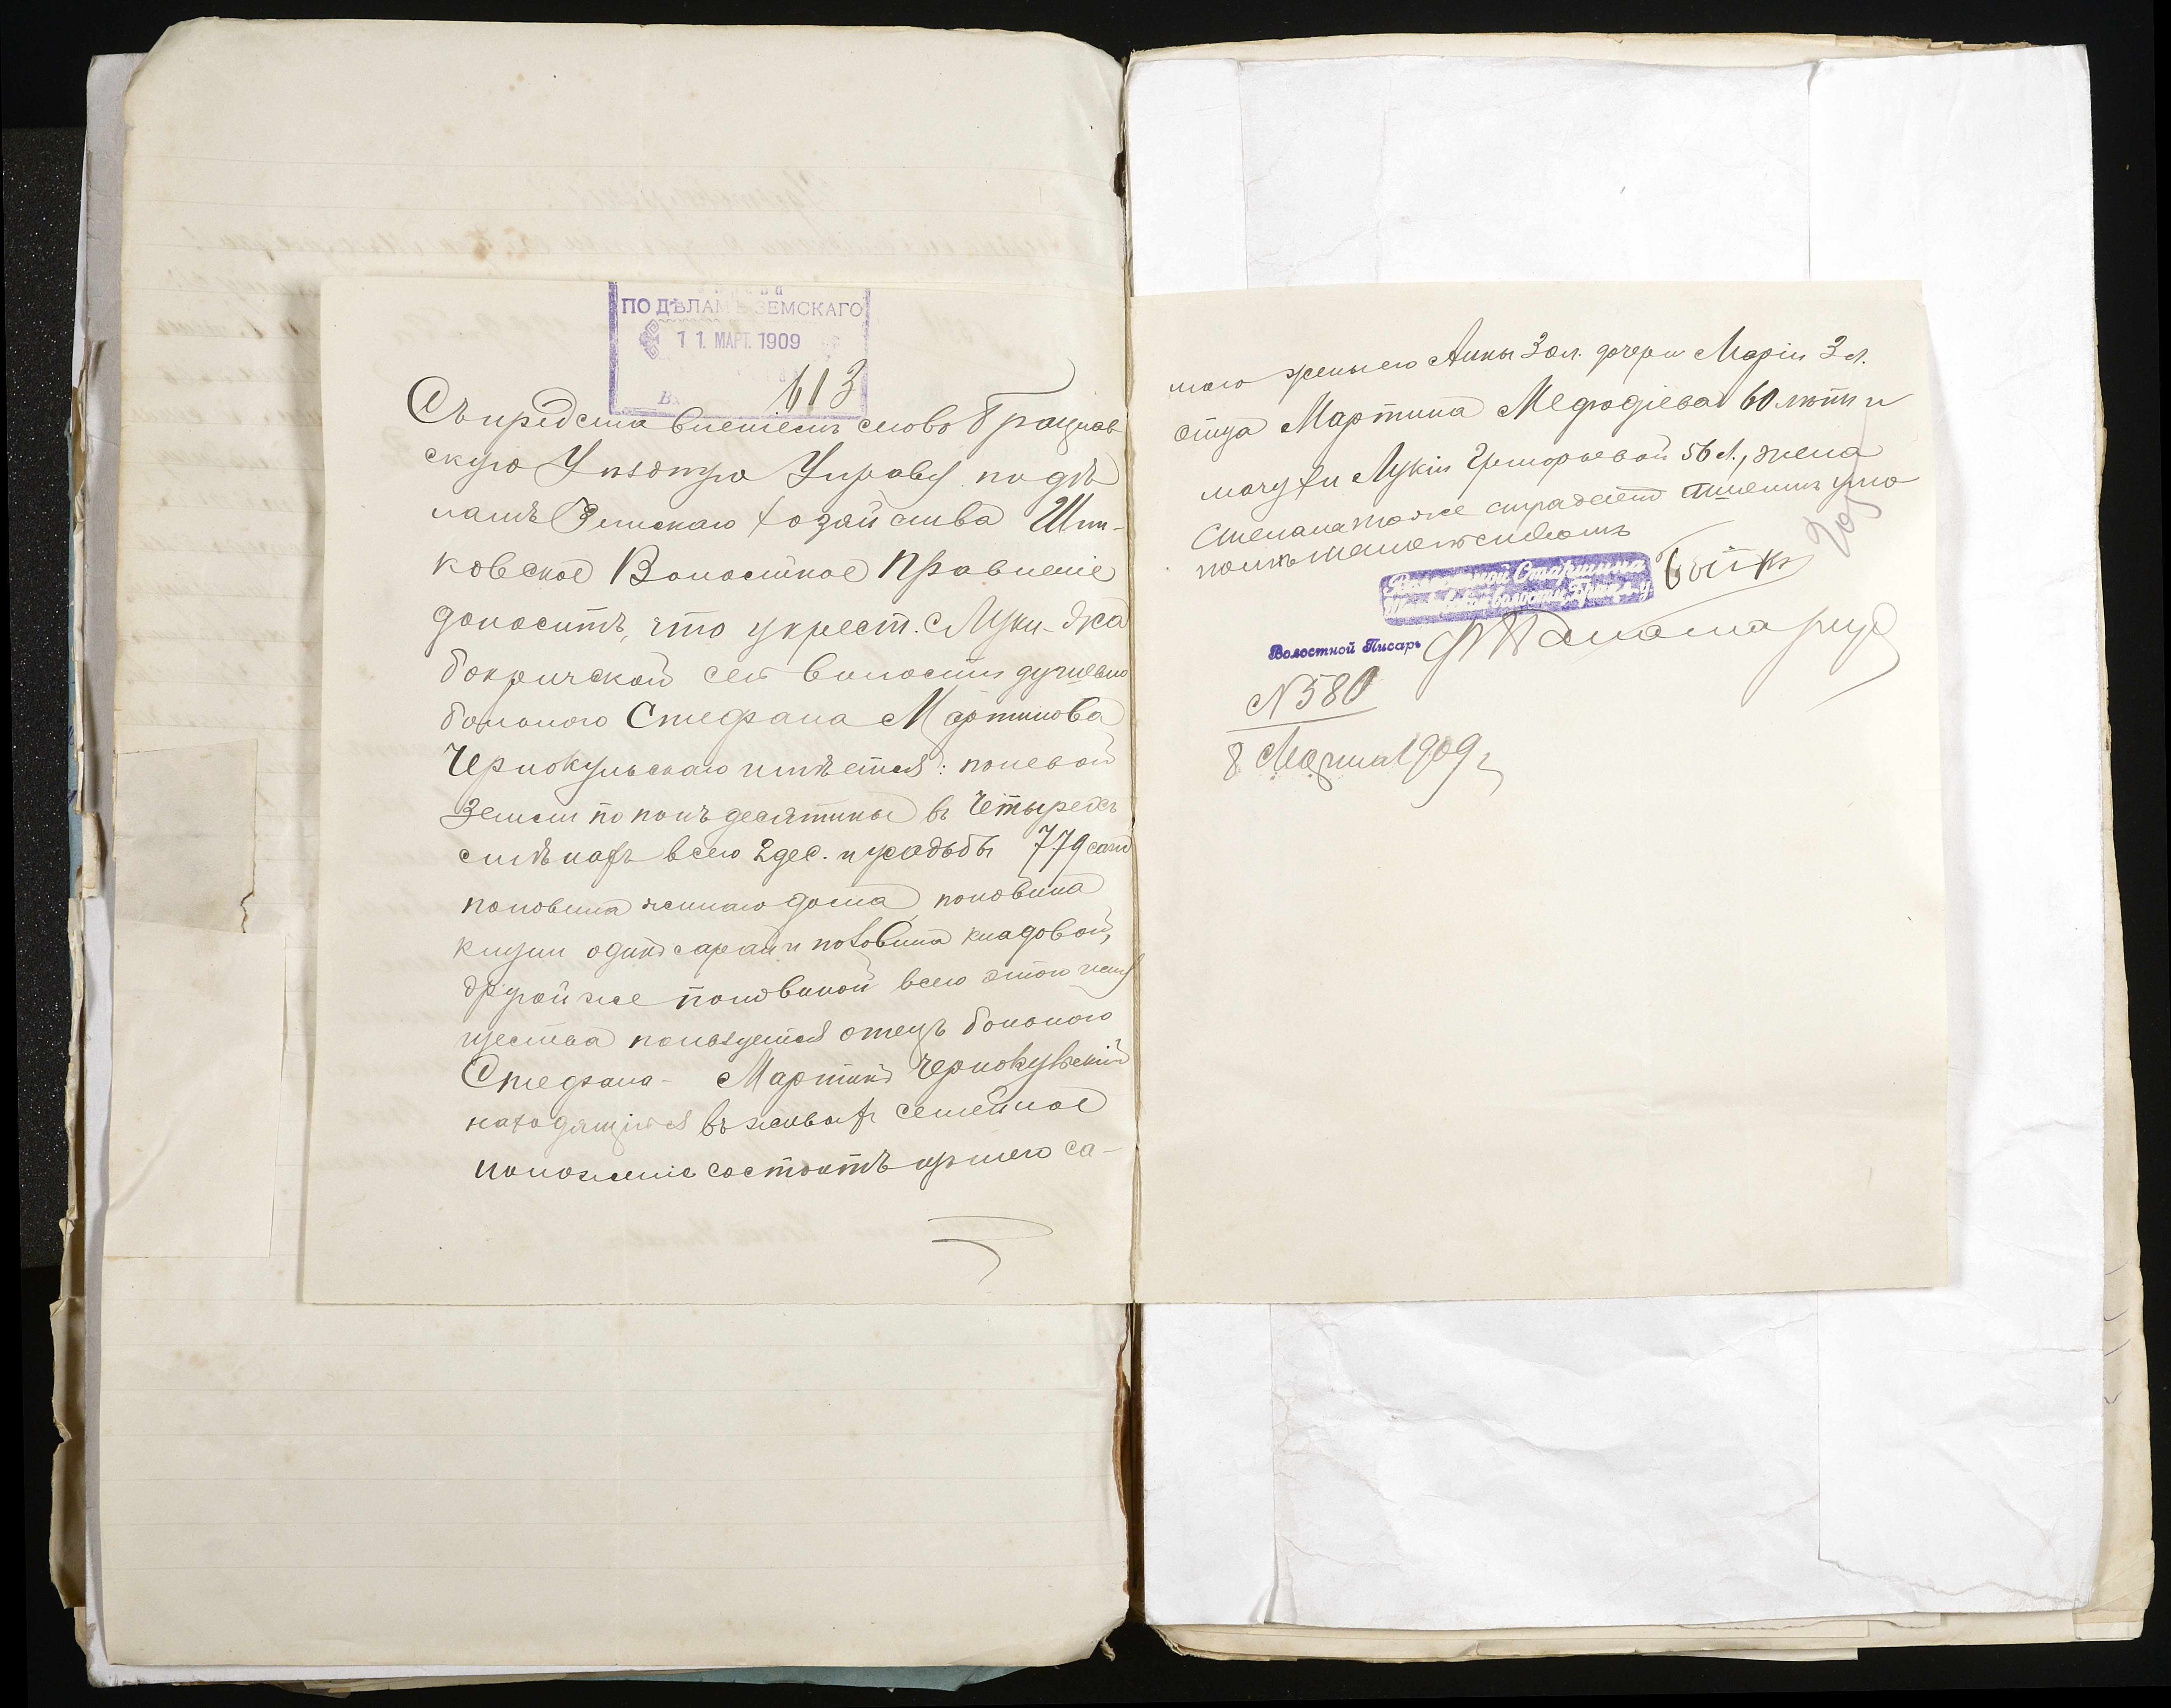 ПО ДѢЛАМЪ ЗЕМСКАГО
11. МАРТ. 1909
Вх. 613
Съ представленіемъ сего въ Брацлав
скую Уѣздную Управу по дѣ
ламъ Земскаго Хозяйства Шпи-
ковское Волостное Правленіе
доноситъ, что у крест. с. Луки-Жа
бокричской сей волости душевно
больного Стефана Мартинова
Чернокульскаго имѣется: полевой
Земли по полъ десятины въ Четырехъ
смѣнахъ всего 2 дес. и усадьбы 779 саж
половина жилаго дома, половина
клуни одинъ сарай и половина кладовой,
другой же половиной всего этого иму
щества пользуется отецъ больного
Стефана - Мартинъ Чернокульскій
находящійся въ живыхъ семейное
положеніе состоитъ изъ него са-
мого жены его Анны 30 л. дочери Маріи 3 л.
отца Мартина Мефодіева 60 лѣтъ и
мачухи Лукіи Григорьевой 56 л., жена
Степана тоже страдаетъ умо
помѣшательствомъ
Волостной Старшина
Волостной Писарь
№ 580
8 Марта 1909 г.